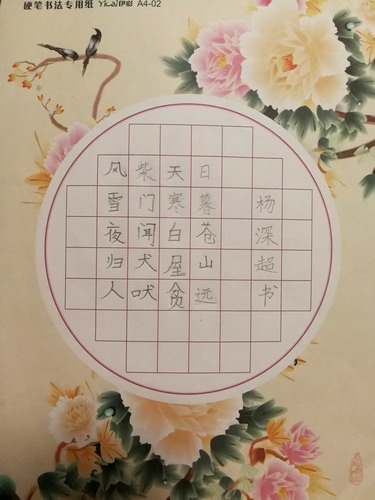 硬笔书法专用纸 Yicai伊彩 A4-02
日暮苍山远
天寒白屋贫
柴门闻犬吠
风雪夜归人
杨深超书